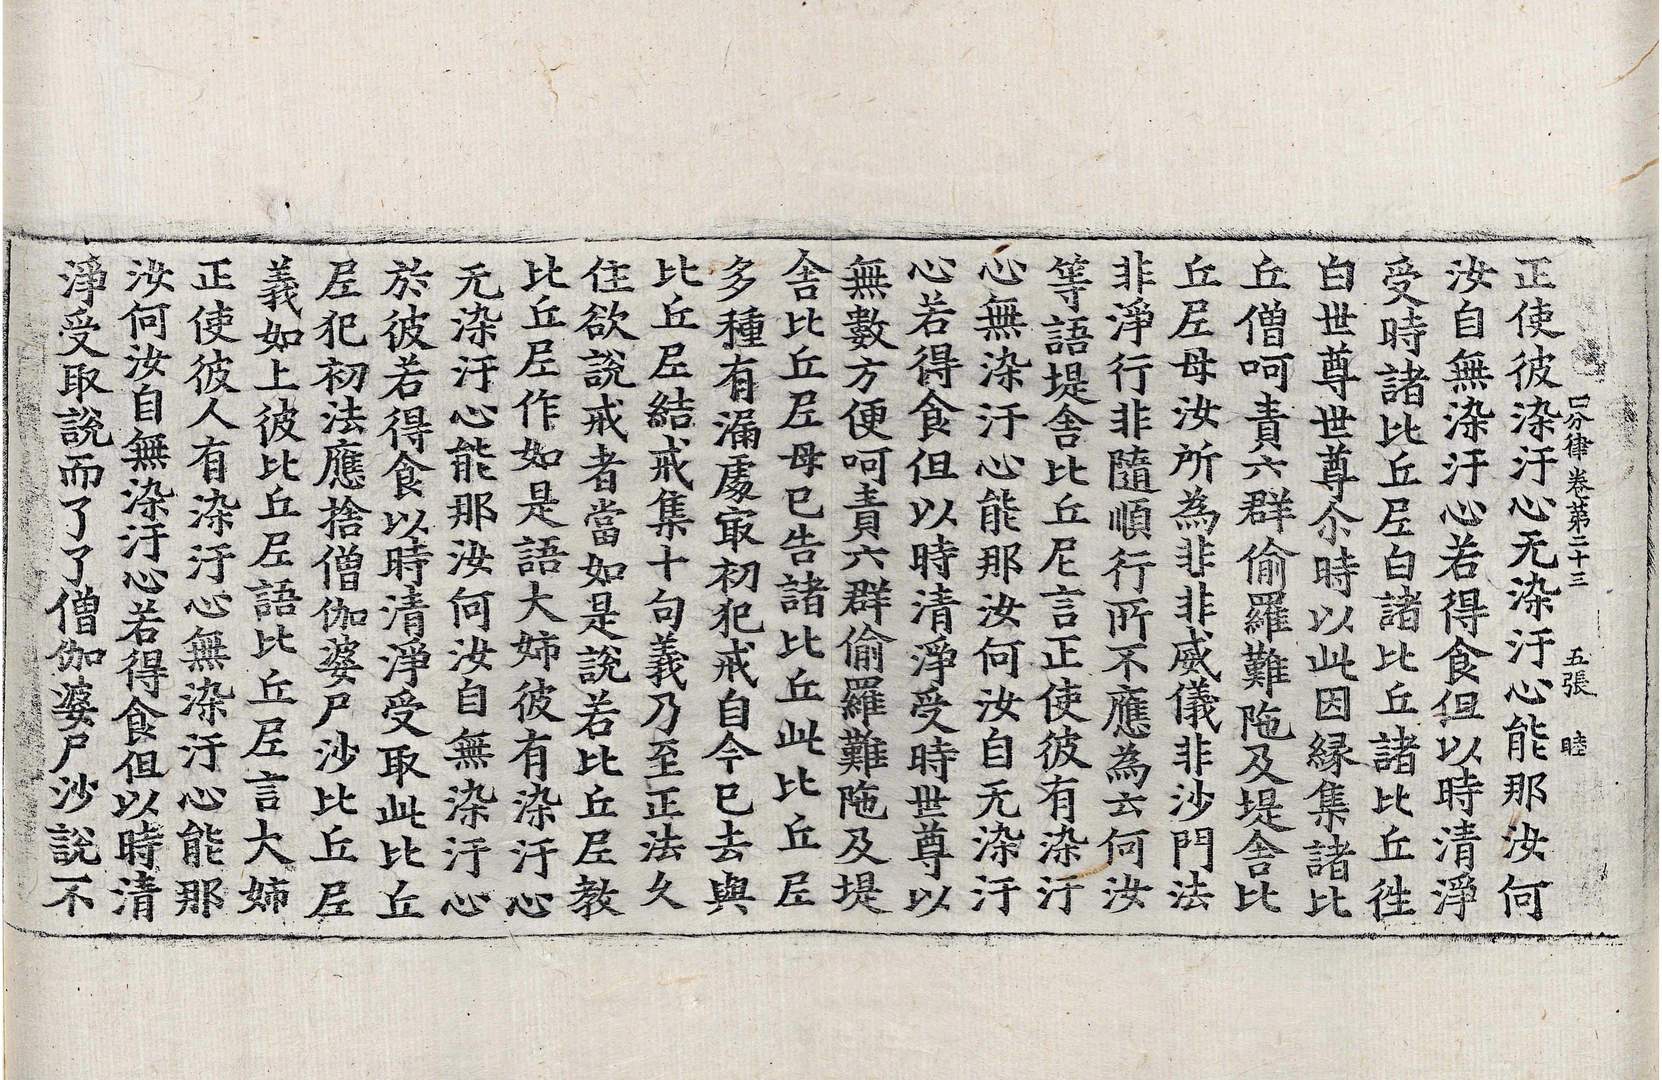 四分律卷第二十三　五張　睦
正使彼染汙心无染汙心能那汝何
汝自無染汙心若得食但以時清淨
受時諸比丘尼白諸比丘諸比丘往
白世尊世尊尒時以此因緣集諸比
丘僧呵責六群偷羅難陁及堤舍比
丘尼母汝所為非非威儀非沙門法
非淨行非隨順行所不應為云何汝
等語堤舍比丘尼言正使彼有染汙
心無染汙心能那汝何汝自无染汙
心若得食但以時清淨受時世尊以
無數方便呵責六群偷羅難陁及堤
舍比丘尼母已告諸比丘此比丘尼
多種有漏處㝡初犯戒自今已去與
比丘尼結戒集十句義乃至正法久
住欲說戒者當如是說若比丘尼教
比丘尼作如是語大姊彼有染汙心
无染汙心能那汝何汝自無染汙心
於彼若得食以時清淨受取此比丘
尼犯初法應捨僧伽婆尸沙比丘尼
義如上彼比丘尼語比丘尼言大姊
正使彼人有染汙心無染汙心能那
汝何汝自無染汙心若得食但以時清
淨受取說而了了僧伽婆尸沙說不